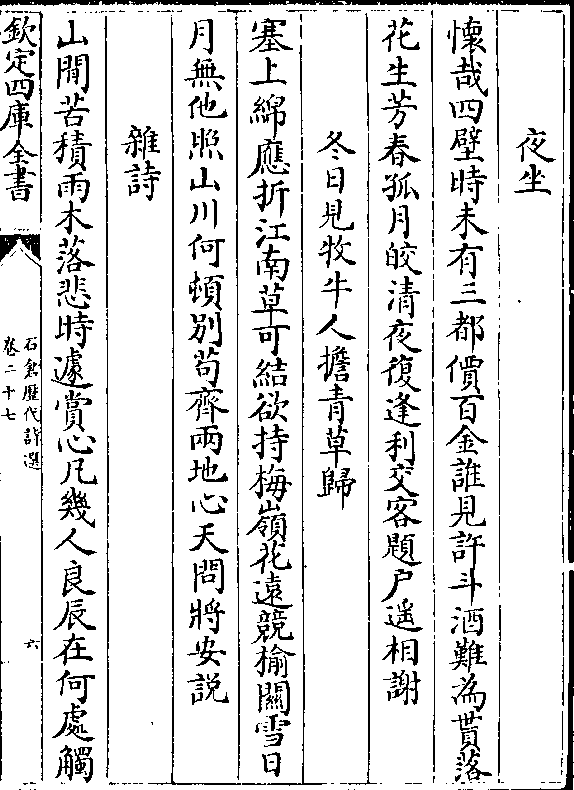 夜坐
懷哉四壁時未有三都價百金誰見許斗酒難為貰落
花生芳春孤月皎清夜復逢利交客題户遥相謝
冬日見牧牛人擔青草歸
塞上綿應折江南草可結欲持梅嶺花遠競榆關雪日
月無他照山川何頓別苟齊兩地心天問將安說
雜詩
山閒苦積雨木落悲時遽賞心凡幾人良辰在何處觸
欽定四庫全書
石倉歷代詩選
卷二十七
六